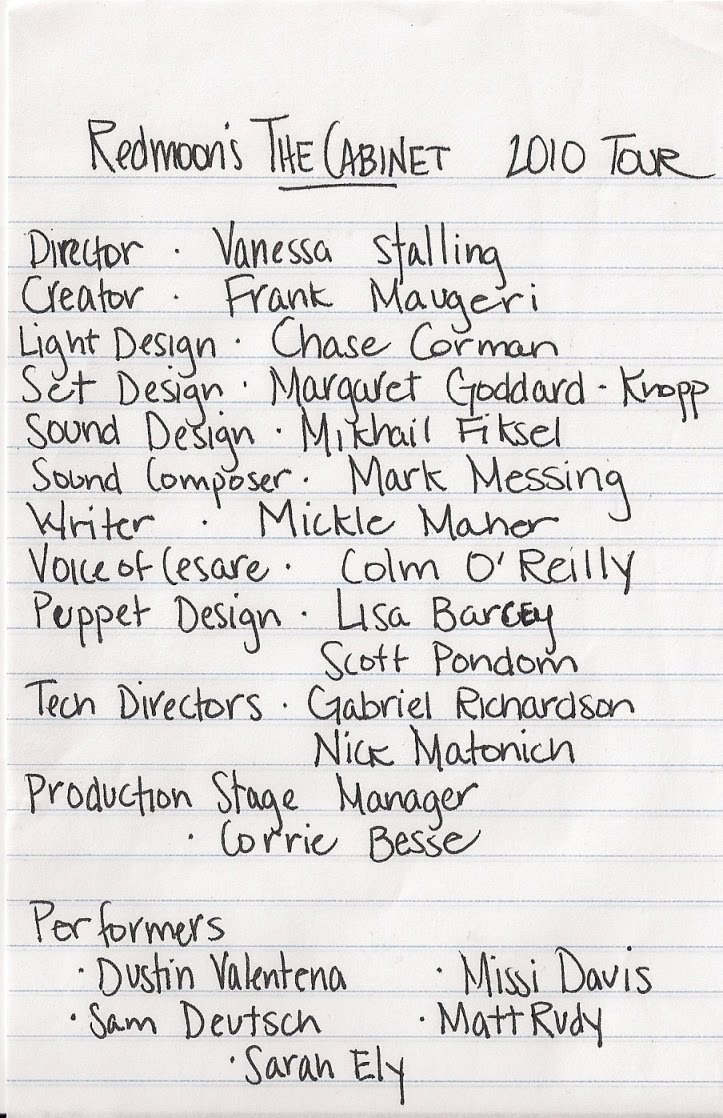 Redmoon's THE CABINET 2010 TOUR
Director · Vanessa Stalling
Creator · Frank Maugeri
Light Design · Chase Corman
Set Design · Margaret Goddard-Knopp
Sound Design · Mikhail Fiksel
Sound Composer · Mark Messing
Writer · Mickle Maher
Voice of Cesare · Colm O'Reilly
Puppet Design · Lisa Barcey
Scott Pondom
Tech Directors · Gabriel Richardson
Nick Matonich
Production Stage Manager
· Corrie Besse
Performers
· Dustin Valentena · Missi Davis
· Sam Deutsch · Matt Rudy
· Sarah Ely